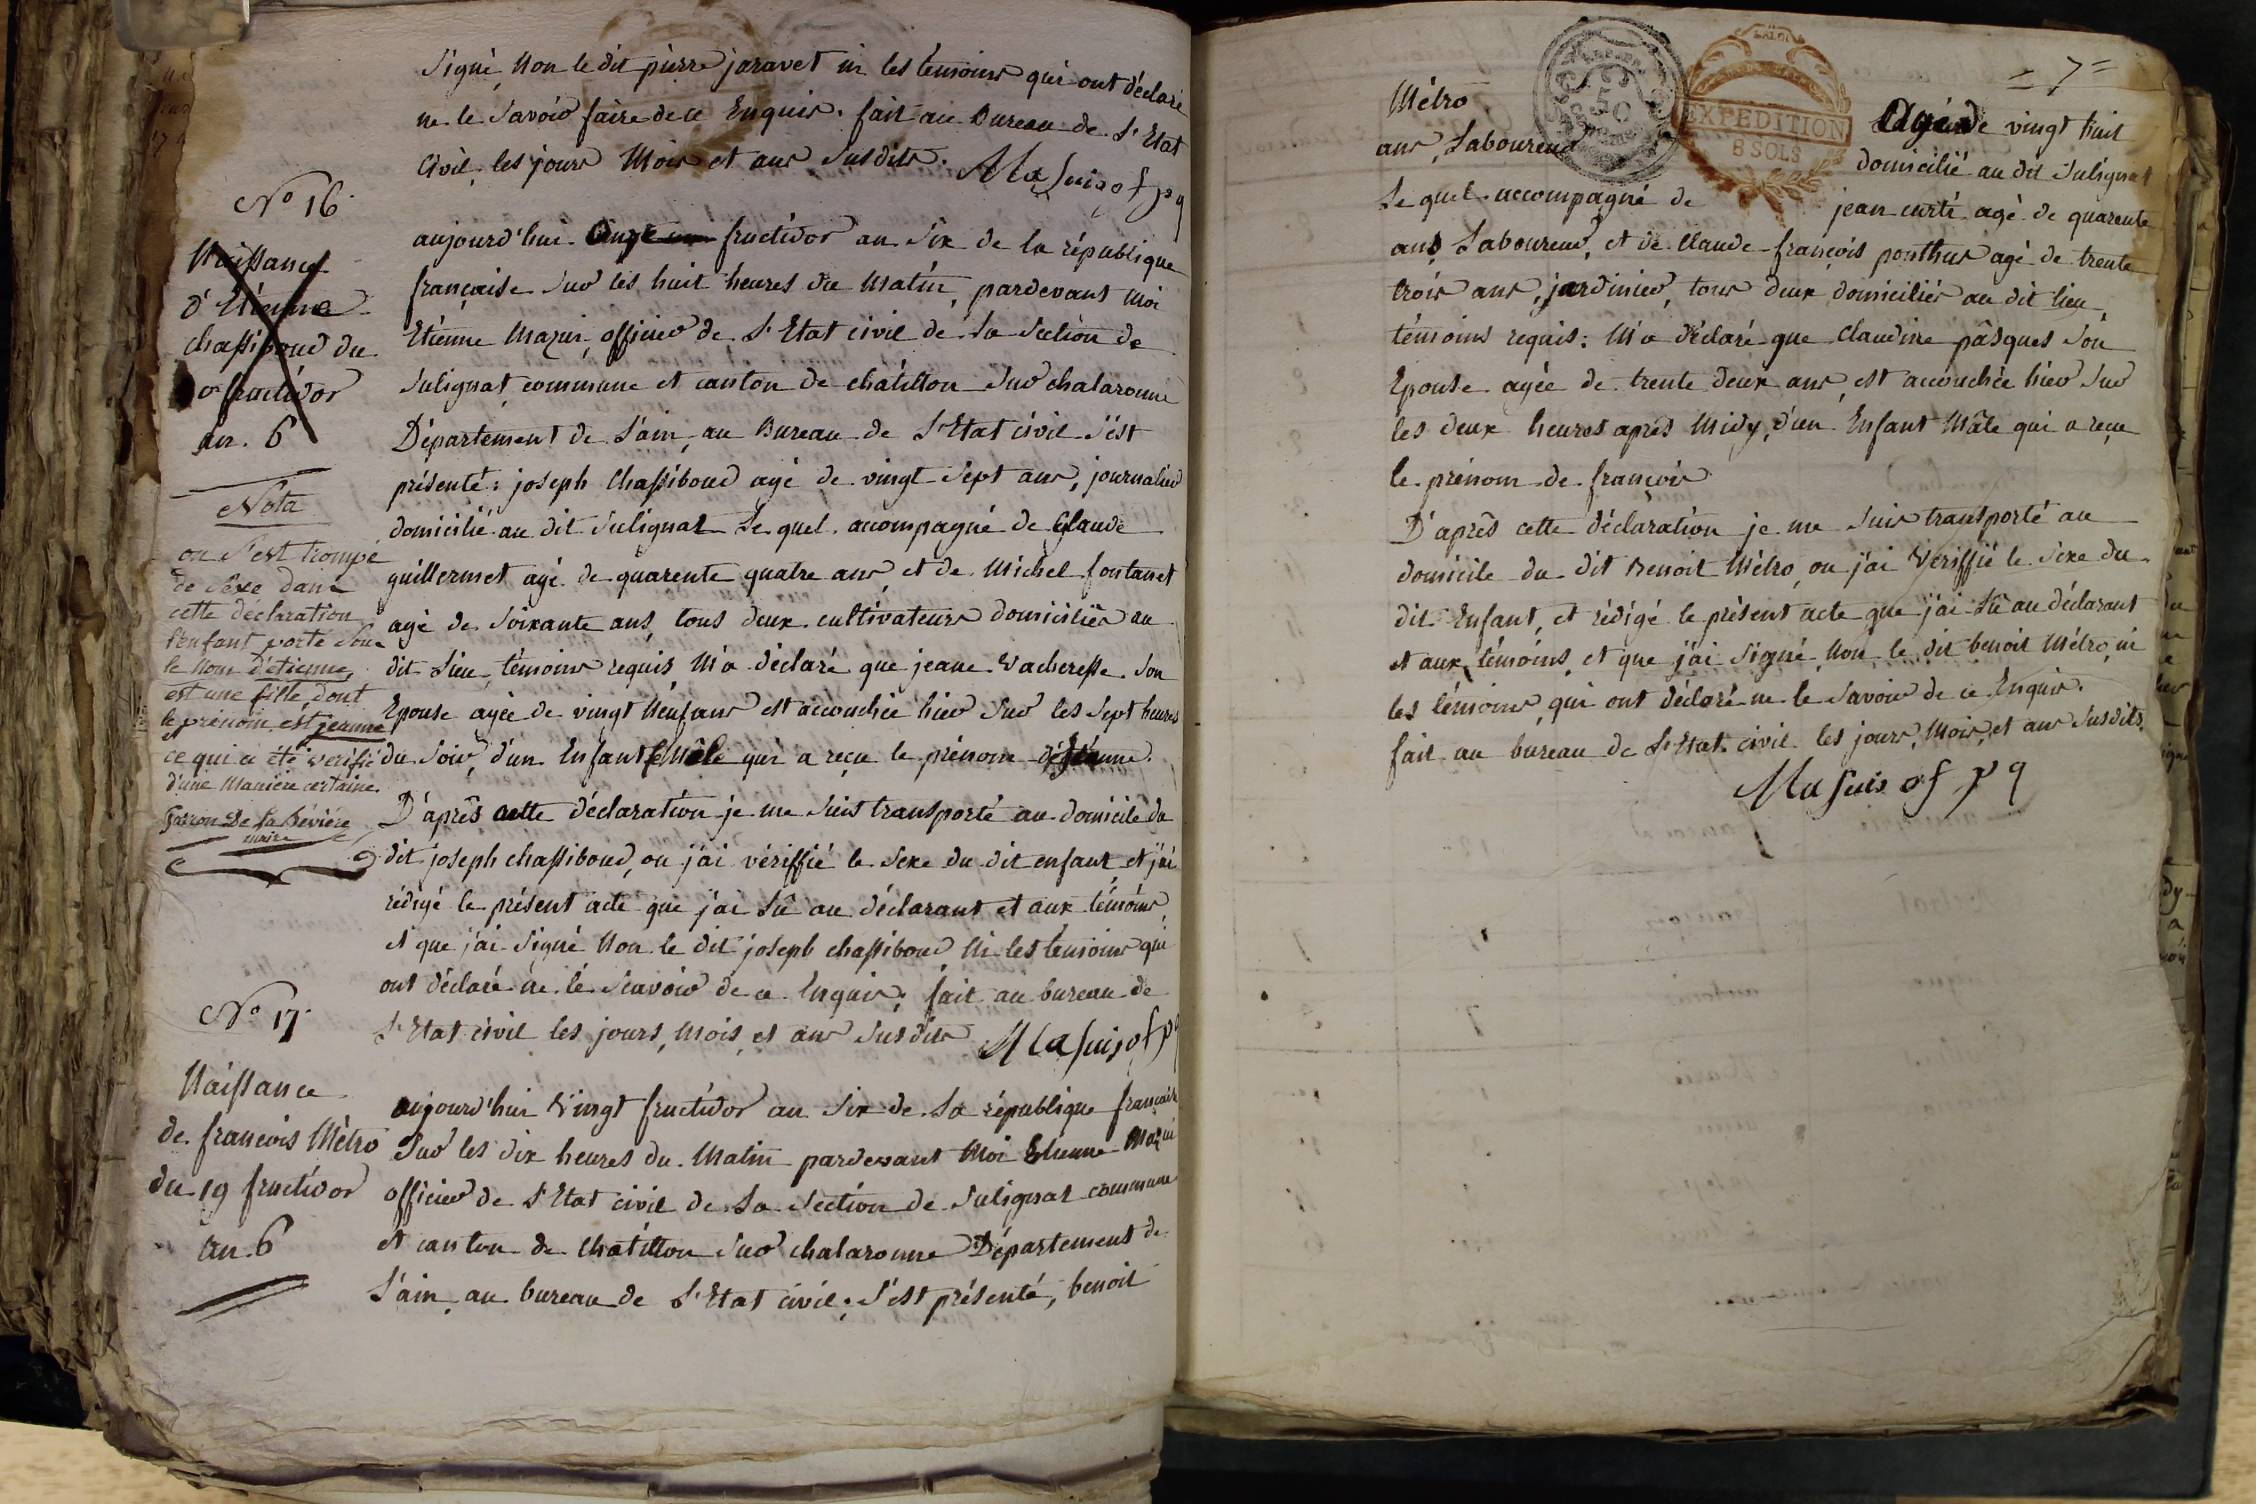 Signé, Non le dit pierre jaravet ni les temoins qui ont déclaré
ne le Savoir faire de ce Enquis. fait au Bureau de L'Etat
Civil, les jours Mois et ans Susdits.
No 16.
Naissance
d'Etienne
chassiboud du
fructidor
an. 6
Nota
on s'est trompé
de sèxe dans
cette déclaration
l'enfant porté sous
le nom d'etienne,
est une fille, dont
le prénom est jeanne
ce qui a été verifié
d'une maniere certaine.
maire
aujourd'hui fructidor an Six de la république
française Sur les huit heures du Matin, pardevant Moi
Etienne Mazui, officier de L'Etat civil de La Section de
Sulignat, commune et canton de châtillon Sur chalaronne
Département de L'ain, au Bureau de L'Etat civil S'est
présenté: joseph Chassiboud agé de vingt Sept ans, journalier
domicilié au dit Sulignat Le quel accompagné de Claude
guillermet agé de quarente quatre ans et de Michel fontanet
agé de Soixante ans, tous deux cultivateurs domiciliés au
dit Lieu, témoins requis, M'a déclaré que jeane Vacheresse Son
Epouse agée de vingt Neuf ans est accouchée hier Sur les Sept heures
du Soir, d'un Enfant qui a reçu le prénom
D'aprês cette déclaration je me Suis transporté au domicile du
dit joseph chassiboud, ou j'ai vériffié le Sexe du dit enfant, et j'ai
rédigé le présent acte que j'ai Lû au déclarant et aux témoins,
et que j'ai Signé, Non le dit joseph chassiboud Ni les temoins qui
ont déclaré ne le Scavoir de ce Enquis; fait au bureau de
L'Etat civil les jours, Mois, et ans Susdits
No 17.
Naissance
de francois Mètro
du 19 fructidor
an. 6
aujourd'hui Vingt fructidor an Six de La république française
Sur les dix heures du Matin pardevant Moi Etienne Mazui
officier de L'Etat civil de La Section de Sulignat commune
et canton de Chatillon Sur chalaronne Département de
L'ain, au bureau de L'Etat civil; S'est présenté, benoit
= 7 =
50
EXPEDITION
8 SOLS
Métro Agé de vingt huit
ans, Laboureur domicilié au dit Sulignat
Le quel accompagné de jean curti agé de quarente
ans Laboureur, et de Claude françois ponthus agé de trente
trois ans, jardinier, tous deux domiciliés au dit lieu,
témoins requis: M'a déclaré que Claudine pâsques Son
Epouse agée de trente deux ans, est accouchée hier Sur
les deux heures aprês Midy, d'un Enfant Mâle qui a reçu
le prénom de françois
D'aprês cette déclaration je me Suis transporté au
domicile du dit Benoit Métro, ou j'ai Vériffié le Sexe du
dit Enfant, et rédigé le présent acte que j'ai Lû au déclarant
et aux témoins, et que j'ai Signé, Non le dit benoit Métro, ni
les témoins, qui ont déclaré ne le Savoir de ce Enquis.
fait au bureau de L'Etat civil les jours, Mois, et ans Susdits.